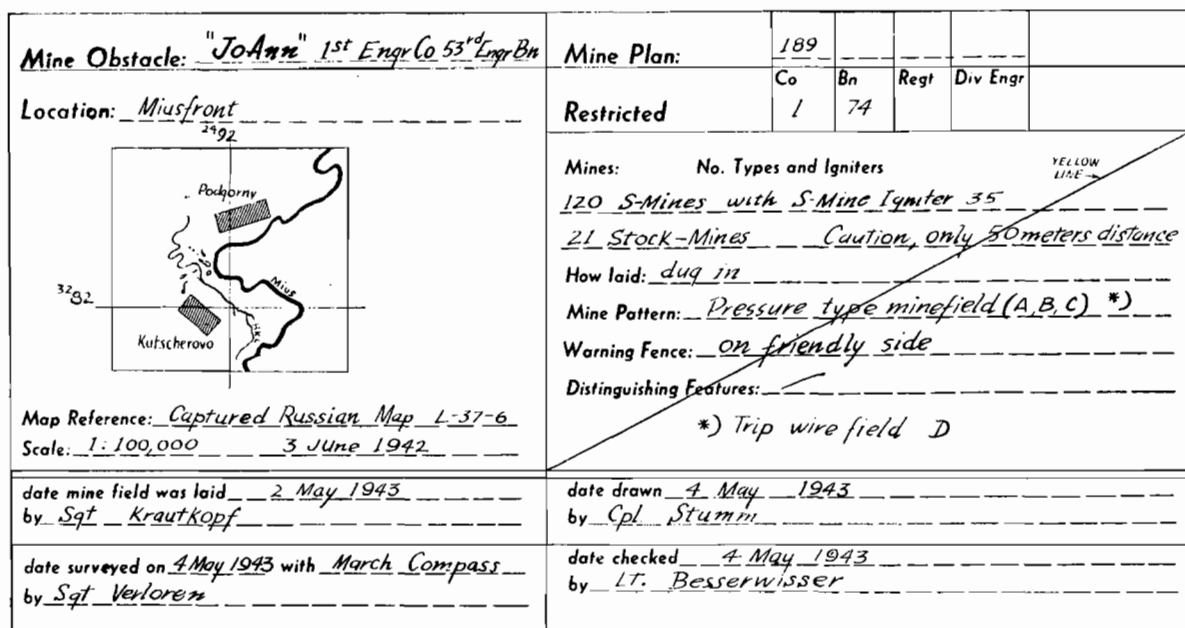 Mine Obstacle: "JoAnn" 1st Engr Co 53rd Engr Bn
Location: Miusfront
2492
Podgorny
Mius
3282
HKL
Kutscherovo
Map Reference: Captured Russian Map L-37-6
Scale: 1:100,000 3 June 1942
Mine Plan: 189
Co Bn Regt Div Engr
Restricted 1 74
Mines: No. Types and Igniters
YELLOW
LINE
120 S-Mines with S-Mine Igniter 35
21 Stock-Mines Caution, only 50 meters distance
How laid: dug in
Mine Pattern: Pressure type minefield (A, B, C) *)
Warning Fence: on friendly side
Distinguishing Features:
*) Trip wire field D
date mine field was laid 2 May 1943
by Sgt Krautkopf
date drawn 4 May 1943
by Cpl Stumm
date surveyed on 4 May 1943 with March Compass
by Sgt Verloren
date checked 4 May 1943
by LT. Besserwisser